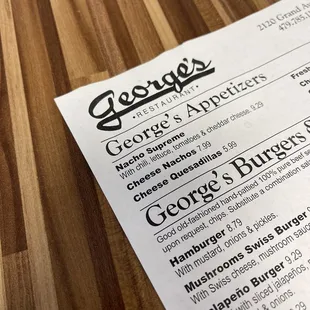 George's
• RESTAURANT •
2120 Grand
479.785.
George's Appetizers
Nacho Supreme
With chili, lettuce, tomatoes & cheddar cheese. 9.29
Cheese Nachos 7.99
Cheese Quesadillas 5.99
George's Burgers &
Good old-fashioned hand-patted 100% pure beef
upon request, chips. Substitute a combination
Hamburger 8.79
With mustard, onions & pickles.
Mushrooms Swiss Burger
With Swiss cheese, mushroom
Jalapeño Burger 9.29
with sliced jalapeños,
onions &